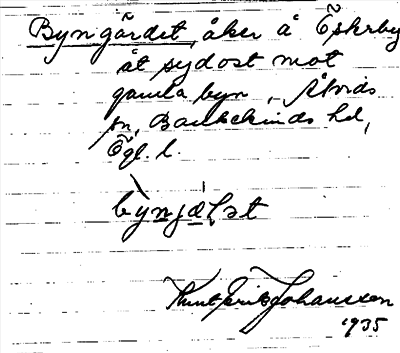 Byngärdet, åker å Öskrby
åt sydost mot
gamla byn, Åtvids
sn, Bankekinds hd,
Ögl. l.
bynjælst
Knut Erik Johansson
1935